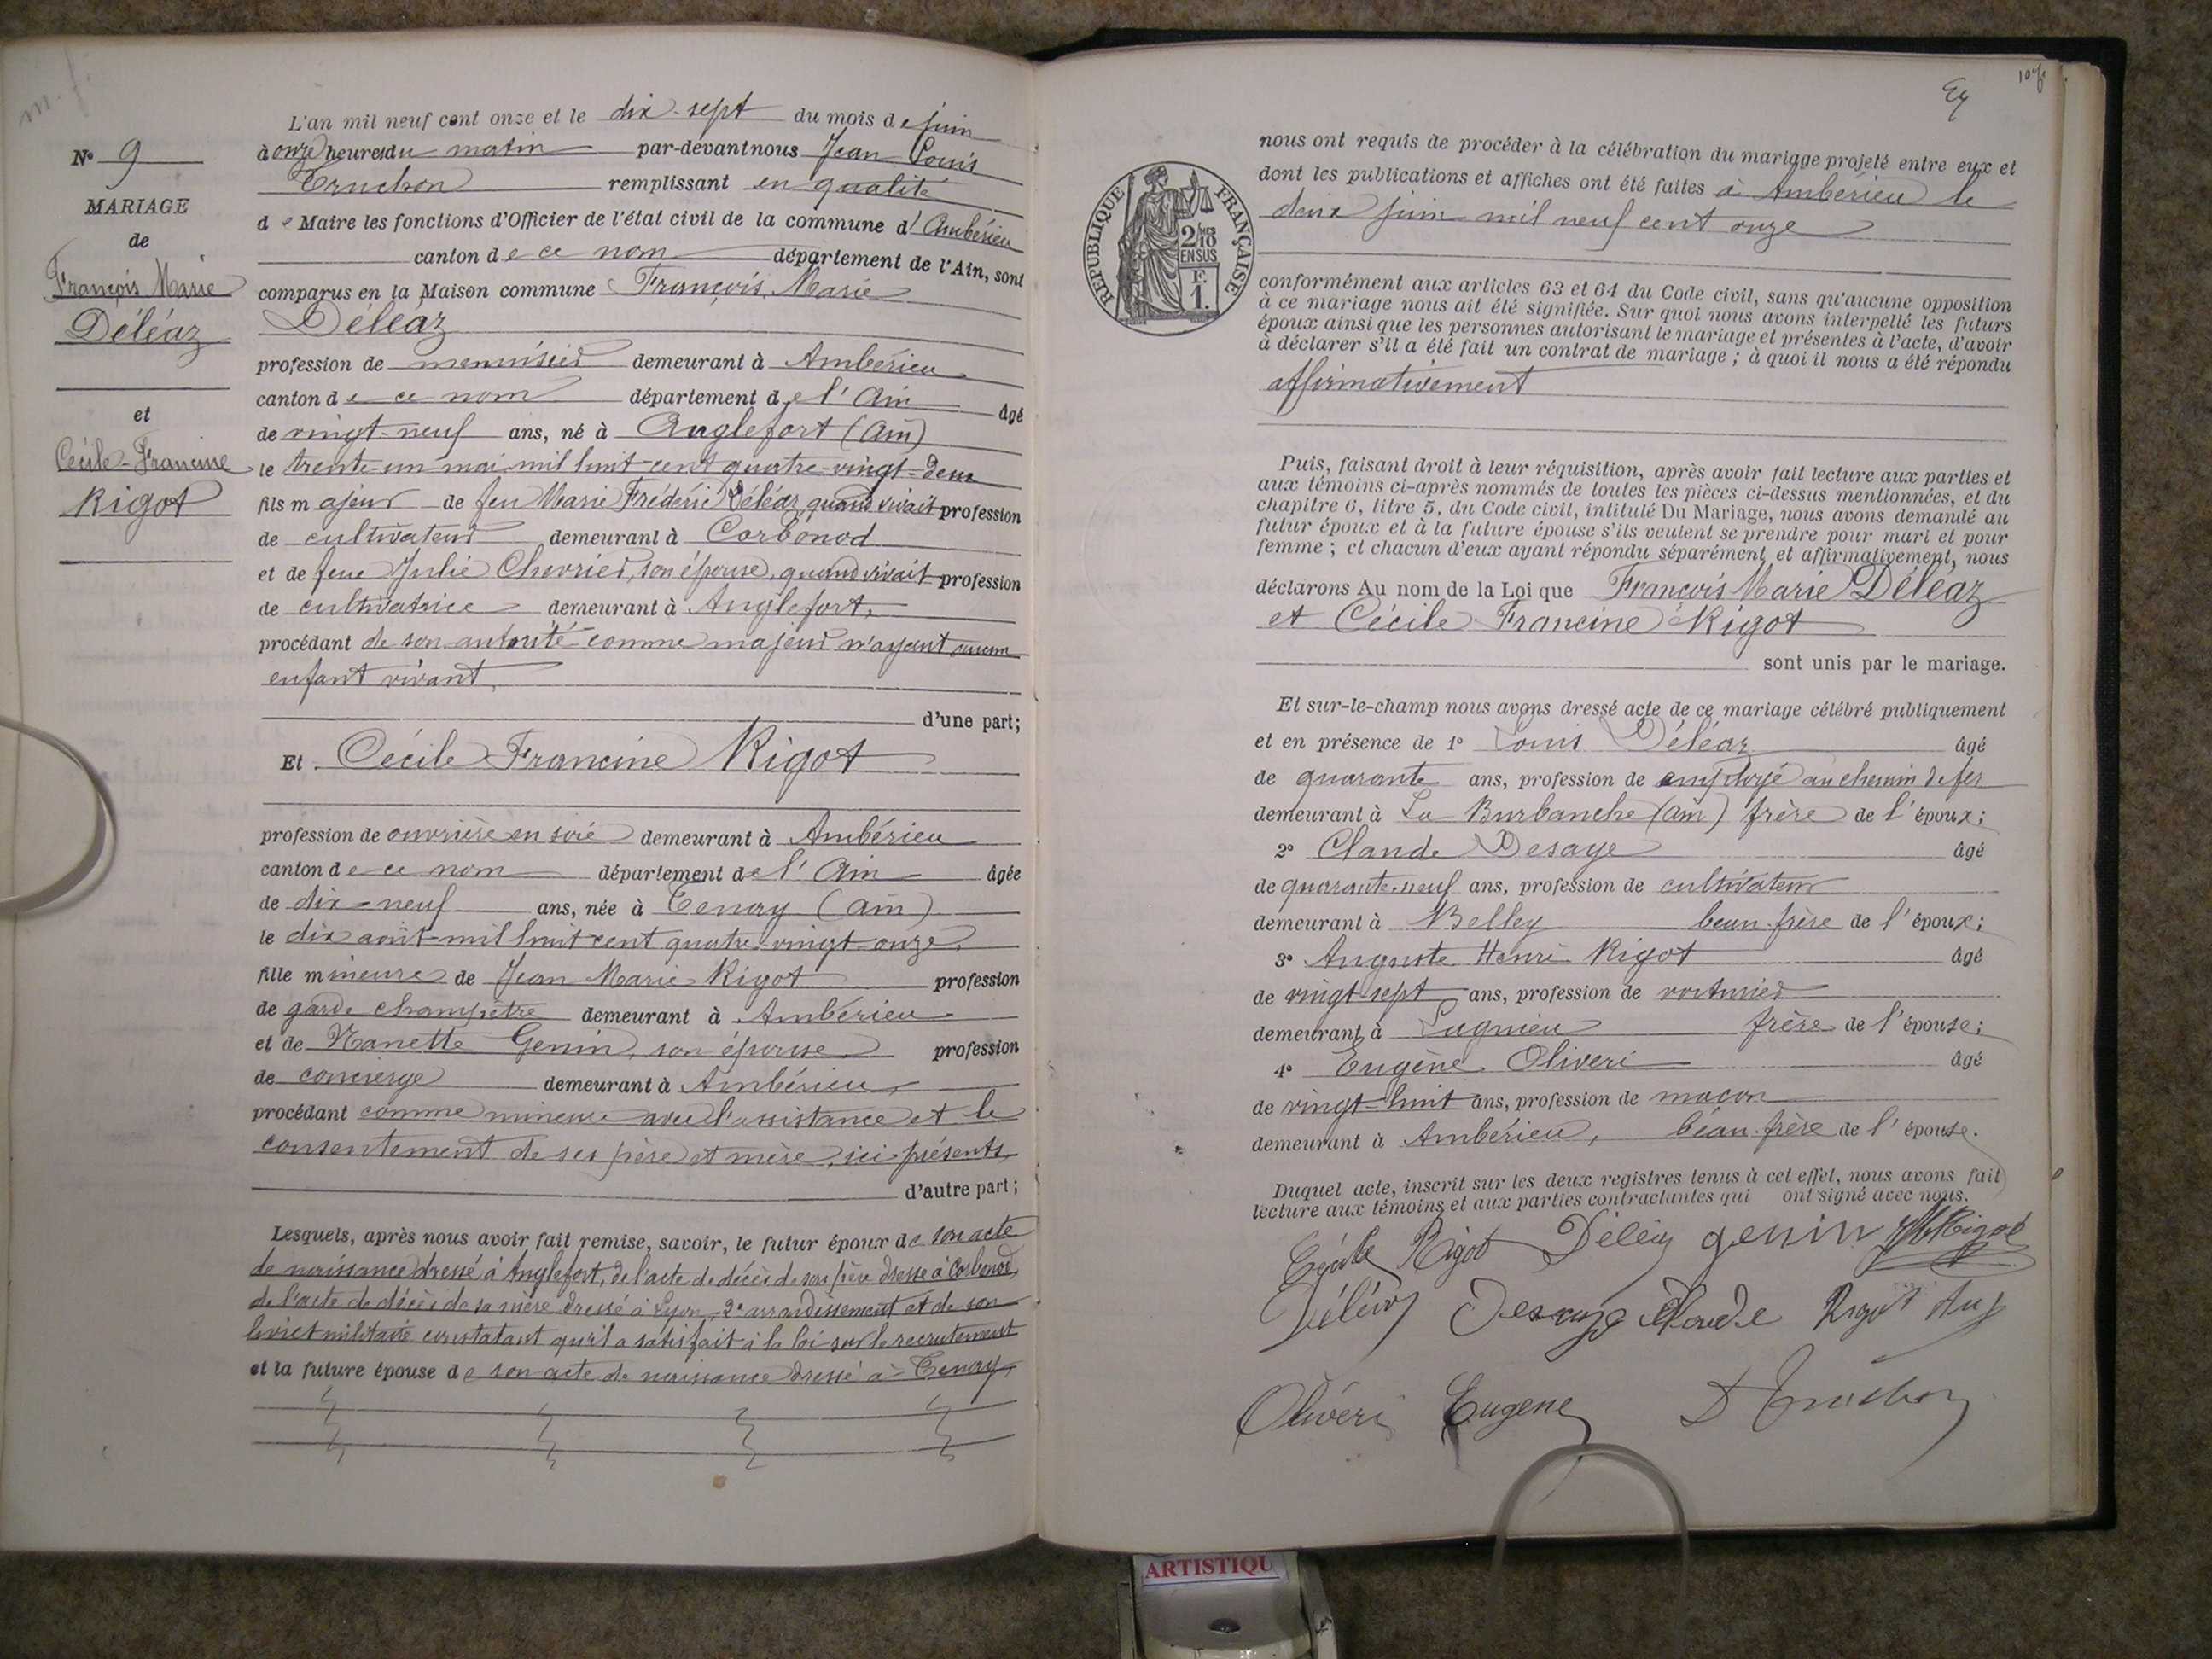 N° 9
MARIAGE
de
François Marie
Déléaz
et
Cécile-Francine
Rigot
L'an mil neuf cent onze et le dix-sept du mois de juin
à onze heures du matin par-devant nous Jean Louis
Truchon remplissant en qualité
de Maire les fonctions d'Officier de l'état civil de la commune d'Ambérieu
canton de ce nom département de l'Ain, sont
comparus en la Maison commune François Marie
Déléaz
profession de menuisier demeurant à Ambérieu
canton de ce nom département de l'Ain âgé
de vingt-neuf ans, né à Anglefort (Ain)
le trente-un mai mil huit cent quatre-vingt-deux
fils majeur de feu Marie Frédéric Déléaz, quand vivait profession
de cultivateur demeurant à Corbonod
et de feue Julie Chevrier, son épouse, quand vivait profession
de cultivatrice demeurant à Anglefort,
procédant de son autorité comme majeur n'ayant aucun
enfant vivant,
d'une part;
Et Cécile Francine Rigot
profession de ouvrière en soie demeurant à Ambérieu
canton de ce nom département de l'Ain âgée
de dix-neuf ans, née à Tenay (Ain)
le dix août mil huit cent quatre-vingt-onze,
fille mineure de Jean Marie Rigot profession
de garde champêtre demeurant à Ambérieu
et de Nanette Genin, son épouse profession
de concierge demeurant à Ambérieu,
procédant comme mineure avec l'assistance et le
consentement de ses père et mère, ici présents,
d'autre part;
Lesquels, après nous avoir fait remise, savoir, le futur époux de son acte
de naissance dressé à Anglefort, de l'acte de décès de son père dressé à Corbonod,
de l'acte de décès de sa mère dressé à Lyon, 2e arrondissement et de son
livret militaire constatant qu'il a satisfait à la loi sur le recrutement
et la future épouse de son acte de naissance dressé à Tenay,
nous ont requis de procéder à la célébration du mariage projeté entre eux et
dont les publications et affiches ont été faites à Ambérieu le
deux juin mil neuf cent onze
RÉPUBLIQUE FRANÇAISE
2/10
EN SUS
F.
1.
conformément aux articles 63 et 64 du Code civil, sans qu'aucune opposition
à ce mariage nous ait été signifiée. Sur quoi nous avons interpellé les futurs
époux ainsi que les personnes autorisant le mariage et présentes à l'acte, d'avoir
à déclarer s'il a été fait un contrat de mariage; à quoi il nous a été répondu
affirmativement
Puis, faisant droit à leur réquisition, après avoir fait lecture aux parties et
aux témoins ci-après nommés de toutes les pièces ci-dessus mentionnées, et du
chapitre 6, titre 5, du Code civil, intitulé Du Mariage, nous avons demandé au
futur époux et à la future épouse s'ils veulent se prendre pour mari et pour
femme; et chacun d'eux ayant répondu séparément et affirmativement, nous
déclarons Au nom de la Loi que François Marie Déléaz
et Cécile Francine Rigot
sont unis par le mariage.
Et sur-le-champ nous avons dressé acte de ce mariage célébré publiquement
et en présence de 1° Louis Déléaz âgé
de quarante ans, profession de employé au chemin de fer
demeurant à La Burbanche (Ain) frère de l'époux;
2° Claude Desaye âgé
de quarante-neuf ans, profession de cultivateur
demeurant à Belley beau-frère de l'époux;
3° Auguste Henri Rigot âgé
de vingt-sept ans, profession de voiturier
demeurant à Lagnieu frère de l'épouse;
4° Eugène Oliveri âgé
de vingt-huit ans, profession de maçon
demeurant à Ambérieu, beau-frère de l'épouse.
Duquel acte, inscrit sur les deux registres tenus à cet effet, nous avons fait
lecture aux témoins et aux parties contractantes qui ont signé avec nous.
Cécile Rigot Déléaz genin Rigot
Déléaz Desaye Claude Rigot Aug
Olivéri Eugene Truchon
ARTISTIQU